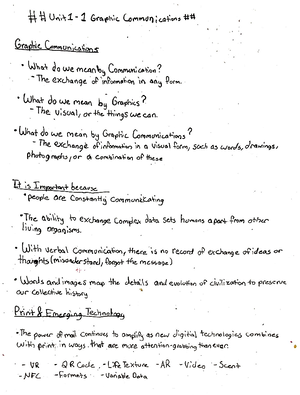 ## Unit 1-1 Graphic Communications ##
Graphic Communications
• What do we mean by Communication?
- The exchange of information in any form.
• What do we mean by Graphics?
- The visual, or the things we can.
• What do we mean by Graphic Communications?
- The exchange of information in a visual form, such as words, drawings,
photographs, or a combination of these
It is Important because
• people are constantly communicating
• The ability to exchange complex data sets humans apart from other
living organisms.
• With verbal communication, there is no record of exchange of ideas or
thoughts (misunderstand, forgot the message)
• Words and images map the details and evolution of civilization to preserve
our collective history
Print & Emerging Technology
• The power of mail continues to amplify as new digital technologies combines
with print in ways that are more attention-grabbing than ever.
- VR - QR Code - Texture - AR - Video - Scent
- NFC - Formats - Variable Data